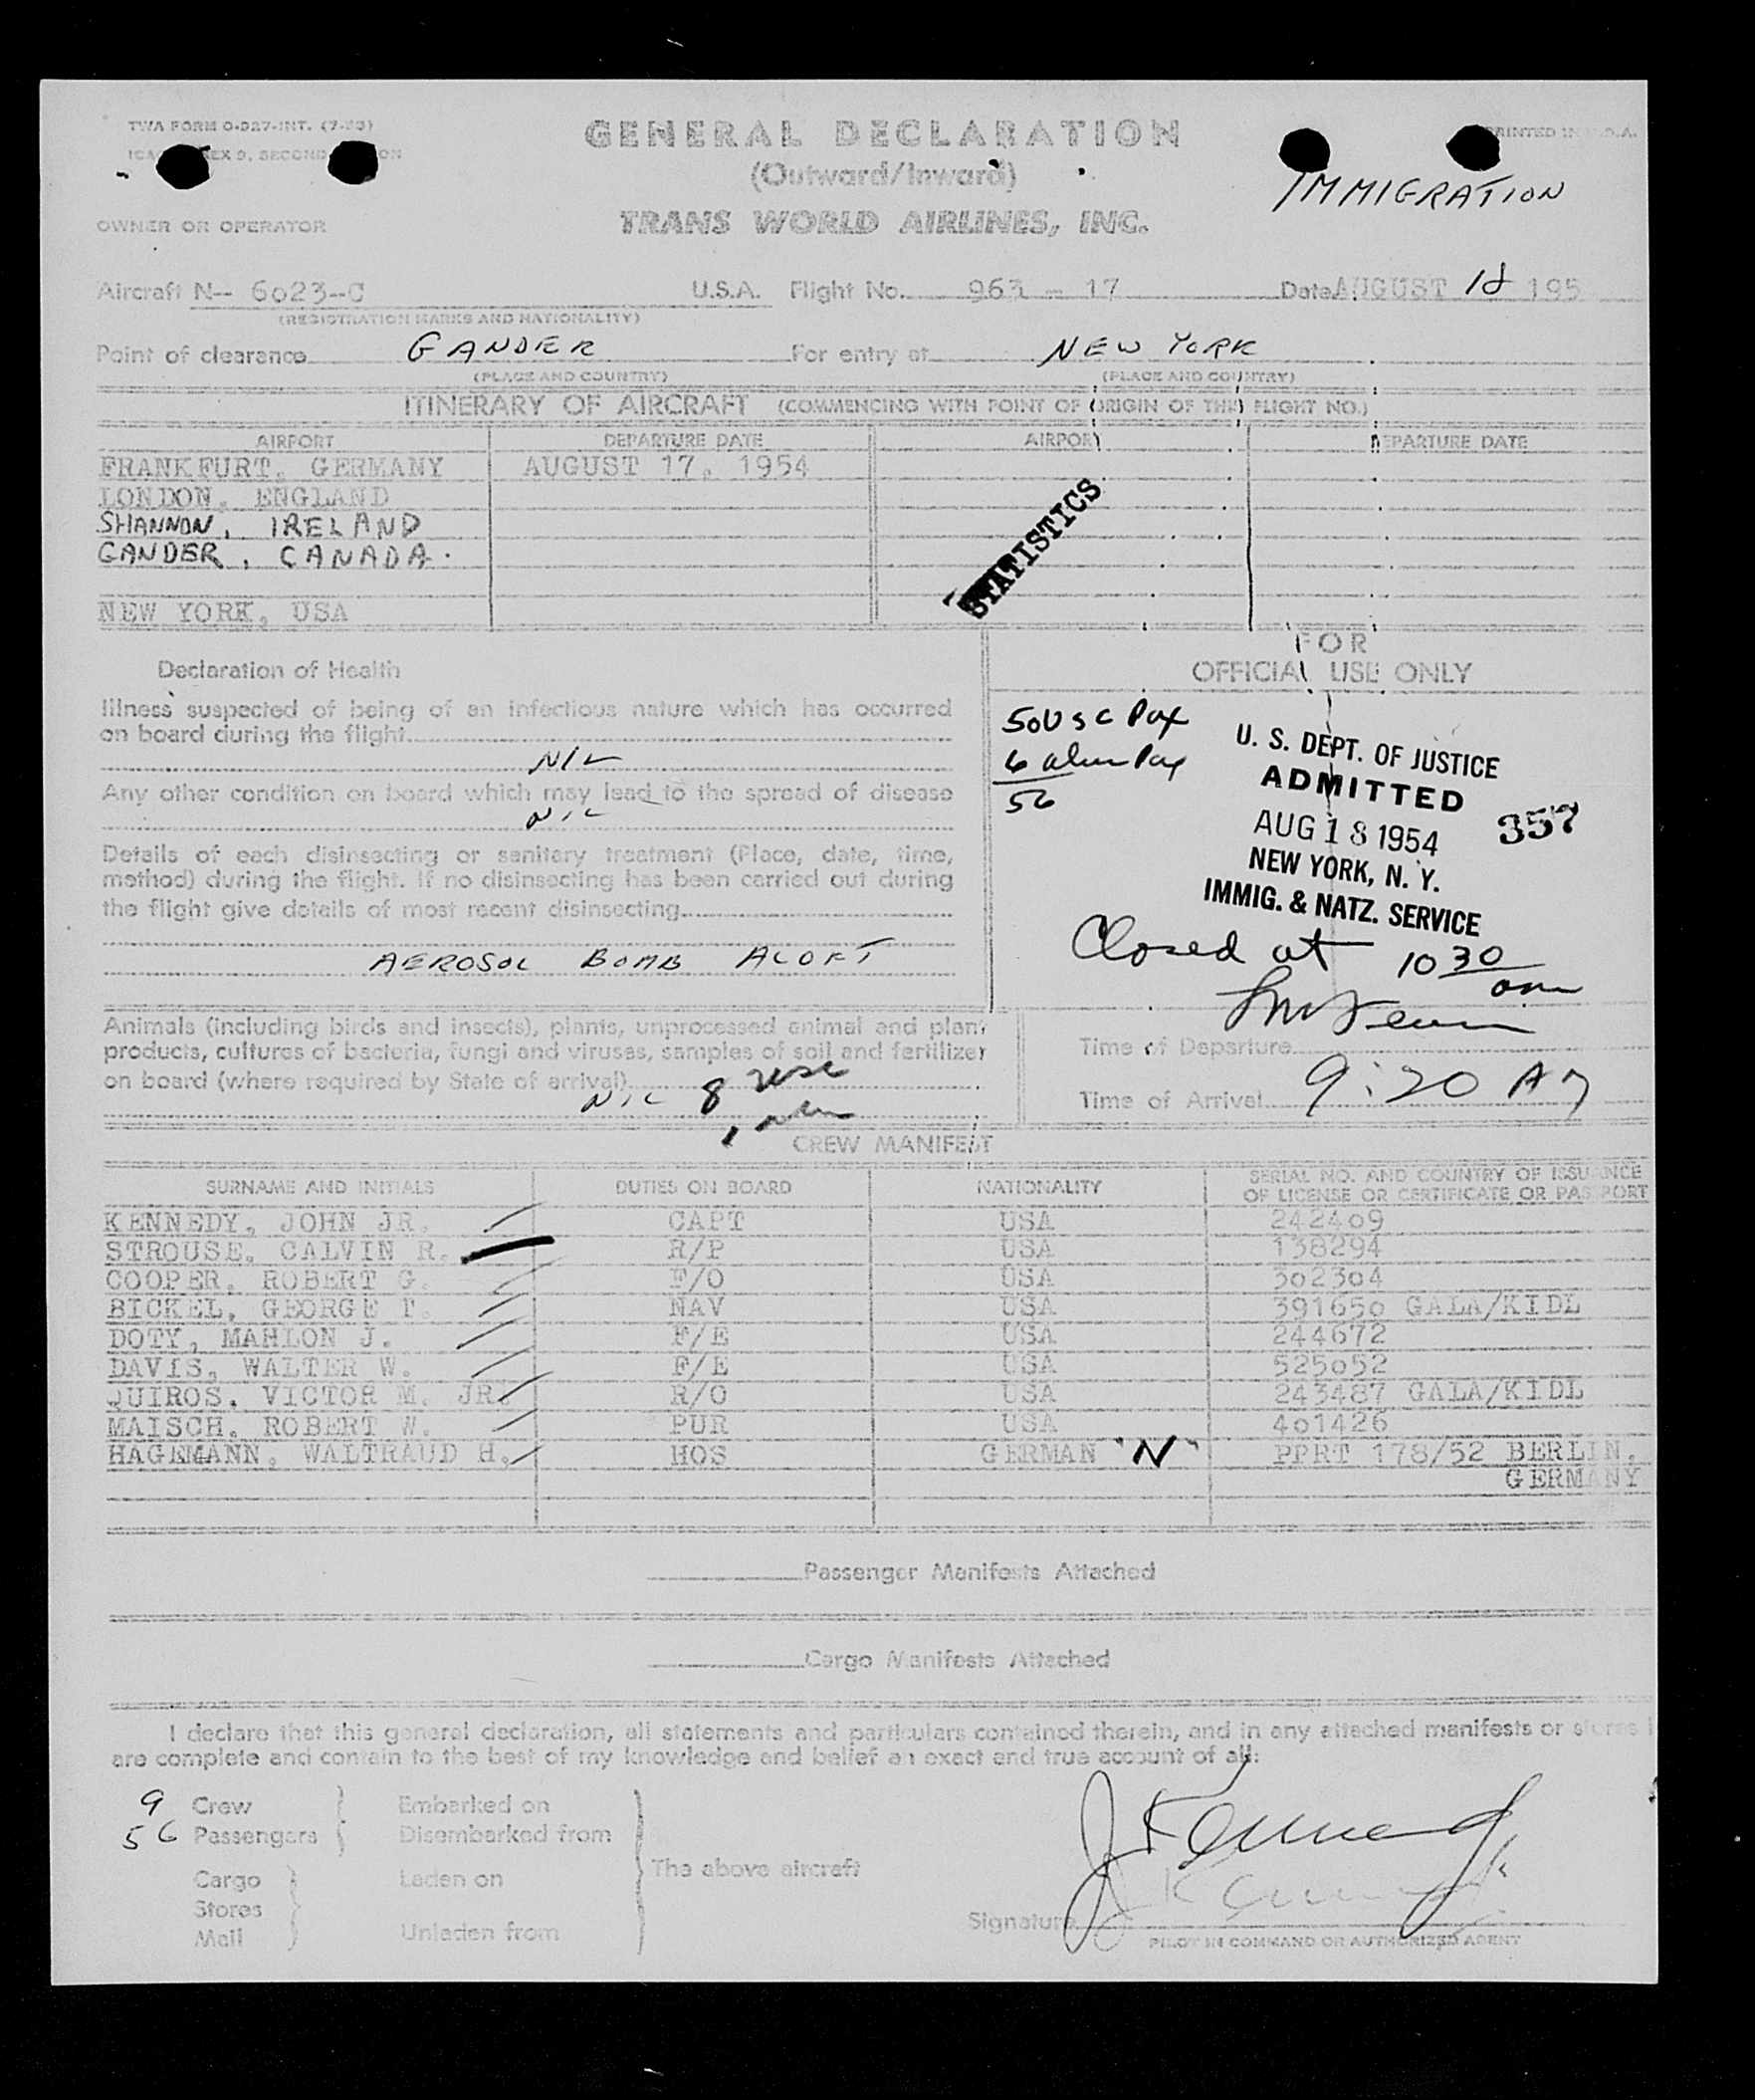 TWA FORM O-927-INT. (7-53)
GENERAL DECLARATION
PRINTED IN U.S.A.
(Outward/Inward)
IMMIGRATION
OWNER OR OPERATOR
TRANS WORLD AIRLINES, INC.
Aircraft N-- 6023--C U.S.A. Flight No. 963 - 17 Date AUGUST 18 195
(REGISTRATION MARKS AND NATIONALITY)
Point of clearance GANDER For entry at NEW YORK
(PLACE AND COUNTRY) (PLACE AND COUNTRY)
ITINERARY OF AIRCRAFT (COMMENCING WITH POINT OF ORIGIN OF THE FLIGHT NO.)
AIRPORT DEPARTURE DATE AIRPORT DEPARTURE DATE
FRANKFURT, GERMANY AUGUST 17, 1954
LONDON, ENGLAND
SHANNON, IRELAND
GANDER, CANADA.
NEW YORK, USA
STATISTICS
FOR
OFFICIAL USE ONLY
Declaration of Health
Illness suspected of being of an infectious nature which has occurred
on board during the flight
NIL
Any other condition on board which may lead to the spread of disease
NIL
Details of each disinsecting or sanitary treatment (Place, date, time,
method) during the flight. If no disinsecting has been carried out during
the flight give details of most recent disinsecting
AEROSOL BOMB ALOFT
50 USC Pax
6 alien Pax
56
U. S. DEPT. OF JUSTICE
ADMITTED
AUG 18 1954 357
NEW YORK, N. Y.
IMMIG. & NATZ. SERVICE
Closed at 10 30
am
Animals (including birds and insects), plants, unprocessed animal and plant
products, cultures of bacteria, fungi and viruses, samples of soil and fertilizer
on board (where required by State of arrival)
NIL 8 usc
1 alien
Time of Departure
Time of Arrival 9:20 AM
CREW MANIFEST
SURNAME AND INITIALS DUTIES ON BOARD NATIONALITY SERIAL NO. AND COUNTRY OF ISSUANCE
OF LICENSE OR CERTIFICATE OR PASSPORT
KENNEDY, JOHN JR. CAPT USA 242409
STROUSE, CALVIN R. R/P USA 138294
COOPER, ROBERT G. F/O USA 302304
BICKEL, GEORGE T. NAV USA 391650 GALA/KIDL
DOTY, MAHLON J. F/E USA 244672
DAVIS, WALTER W. F/E USA 525052
QUIROS, VICTOR M. JR. R/O USA 243487 GALA/KIDL
MAISCH, ROBERT W. PUR USA 401426
HAGEMANN, WALTRAUD H. HOS GERMAN "N" PPRT 178/52 BERLIN,
GERMANY
Passenger Manifests Attached
Cargo Manifests Attached
I declare that this general declaration, all statements and particulars contained therein, and in any attached manifests or stores
are complete and contain to the best of my knowledge and belief an exact and true account of all:
9 Crew Embarked on
56 Passengers Disembarked from
The above aircraft
Cargo Laden on
Stores
Mail Unladen from
J Kennedy Jr
Signature
PILOT IN COMMAND OR AUTHORIZED AGENT